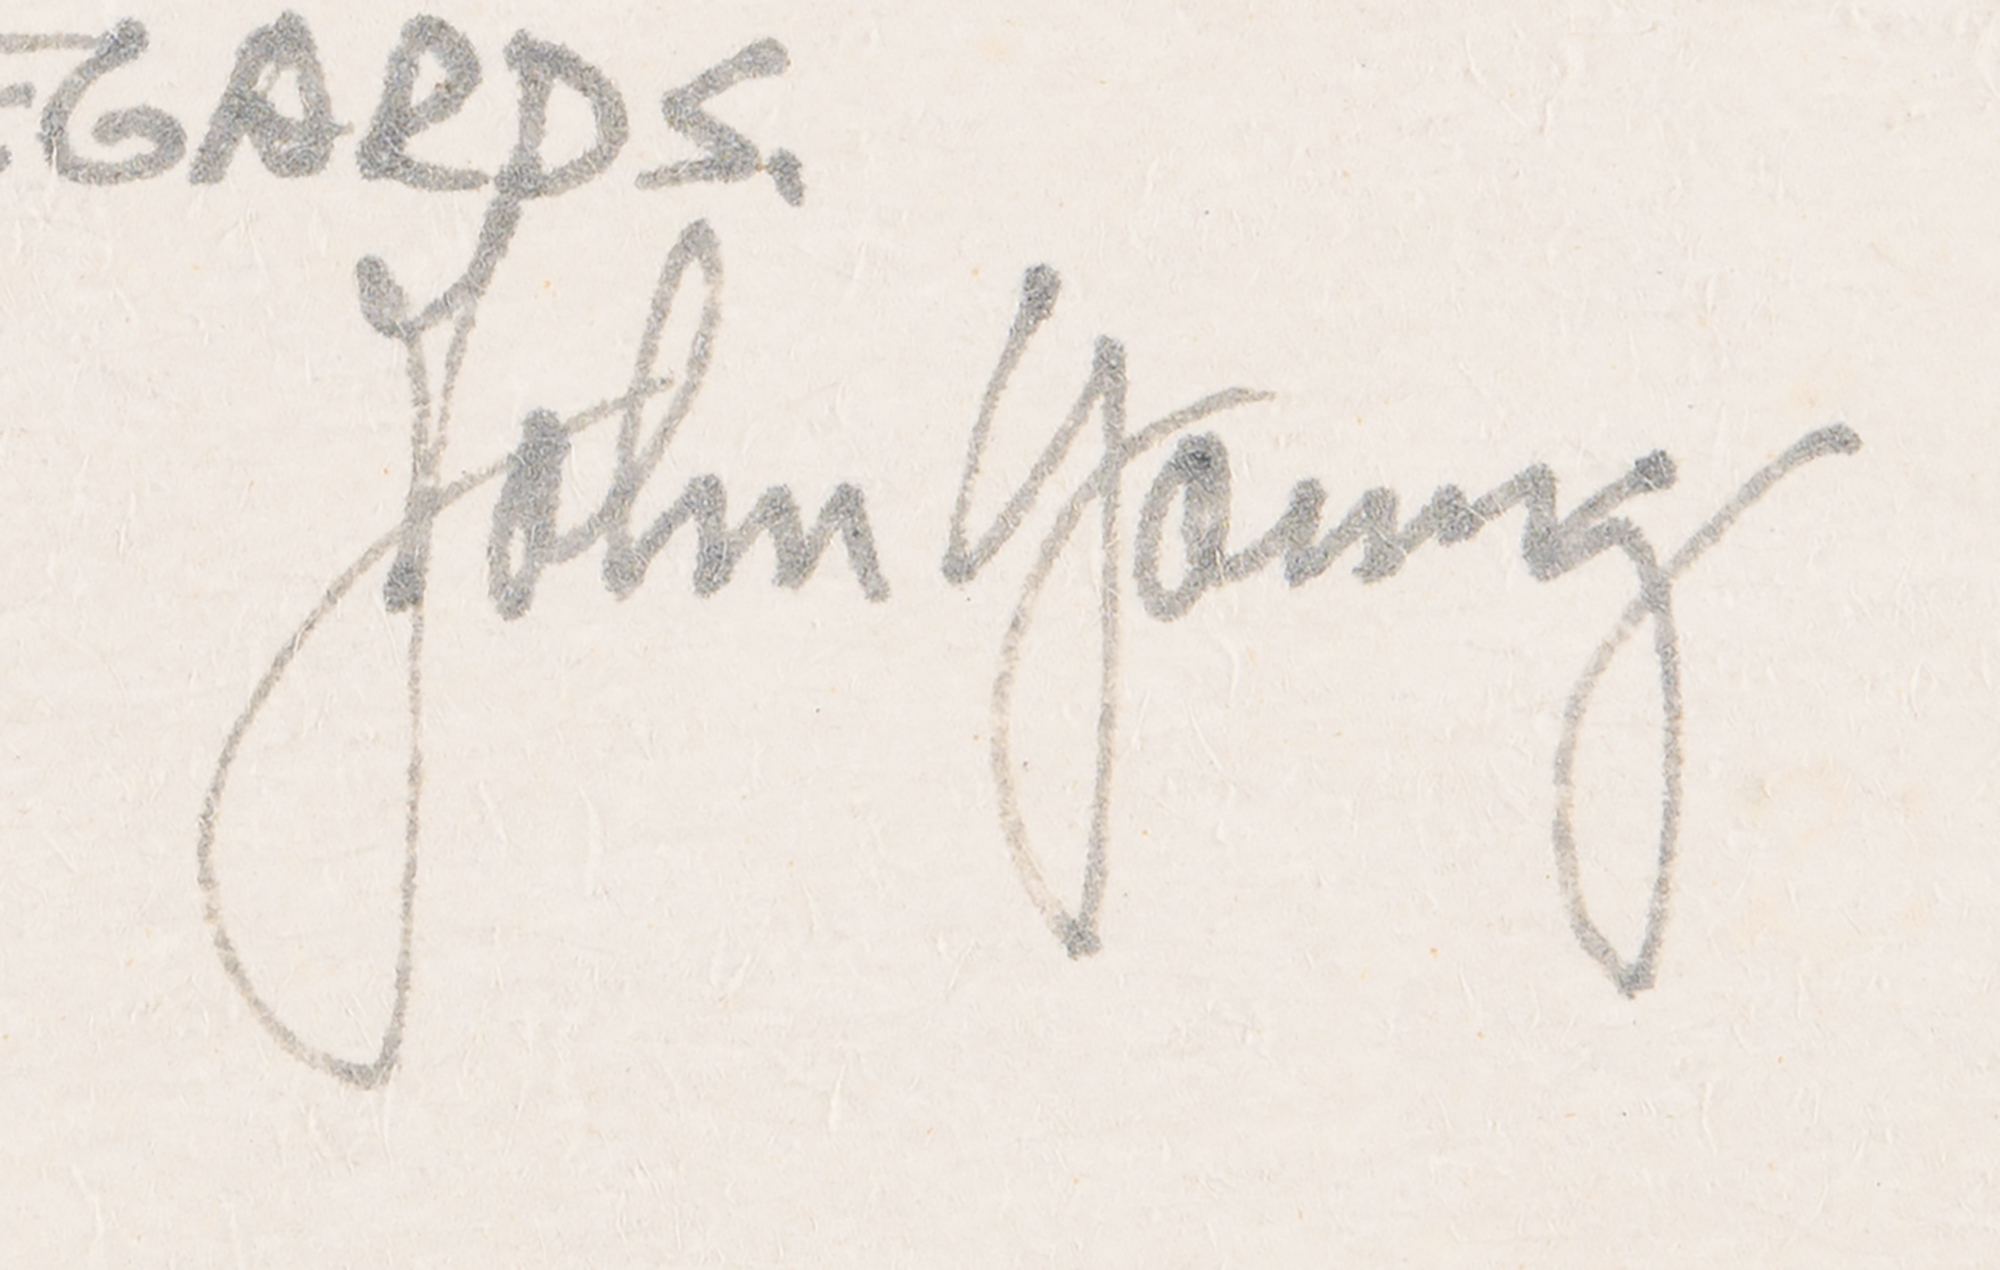 EGARDS.
John Young